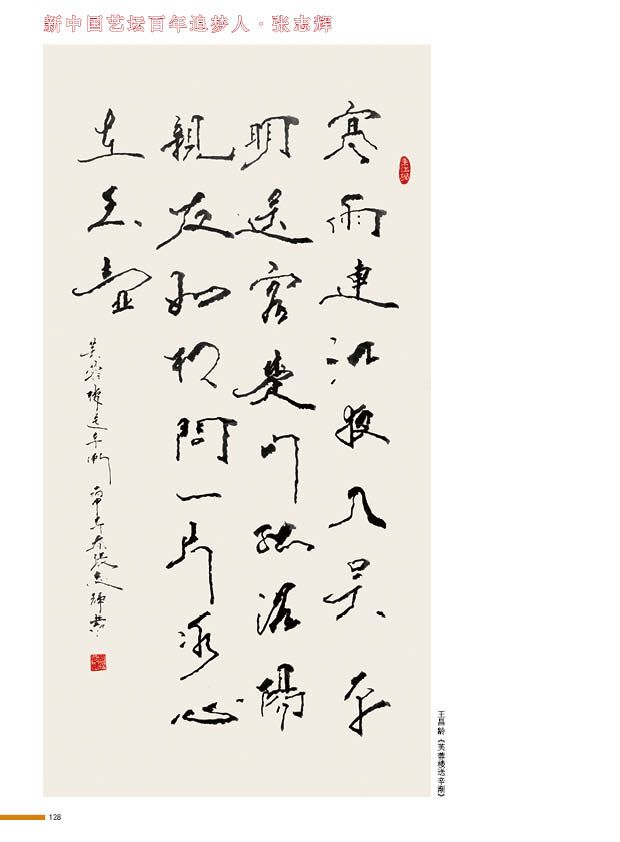 新中国艺坛百年追梦人·张志辉
寒雨連江夜入吴平
明送客楚山孤洛陽
親友如相問一片冰心
在玉壺
芙蓉樓送辛漸 丙申年 張志輝書
王昌龄《芙蓉楼送辛渐》
128